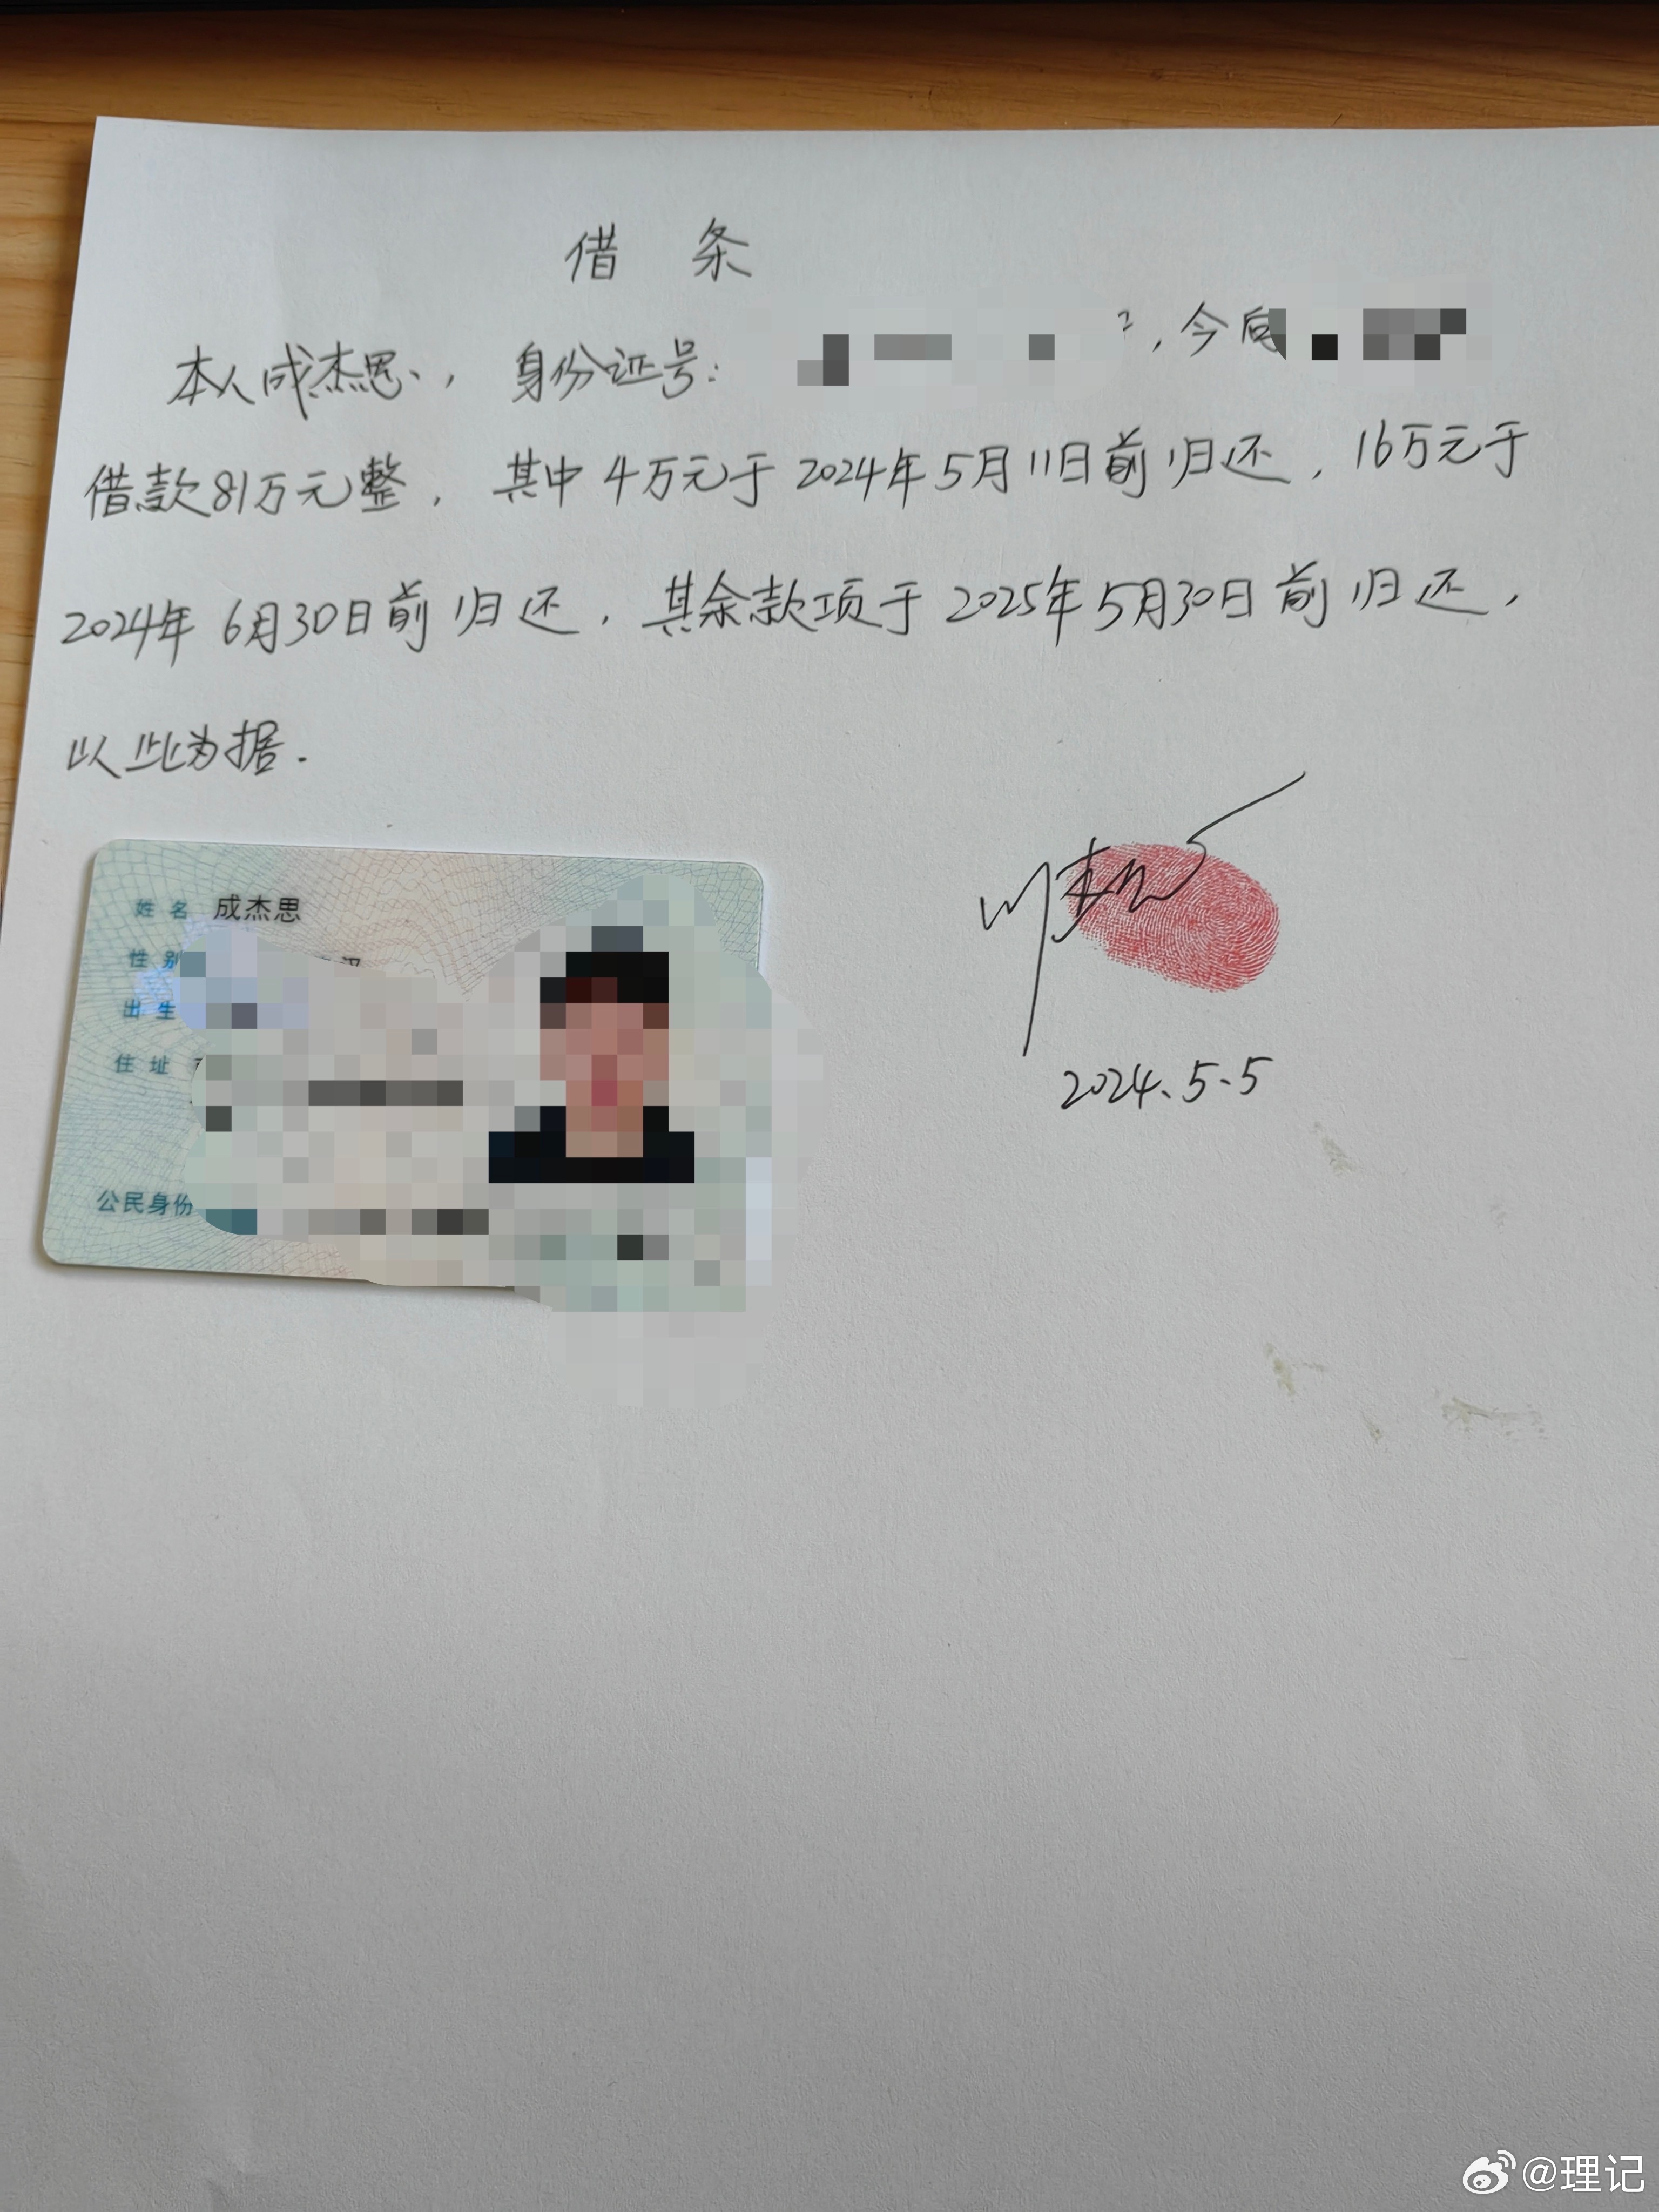 借 条
本人成杰思、，身份证号： 2，今向
借款81万元整，其中4万元于2024年5月11日前归还，16万元于
2024年6月30日前归还，其余款项于2025年5月30日前归还，
以此为据.
姓名 成杰思
性别 汉
出生
住址
公民身份
成杰思
2024、5、5
@理记